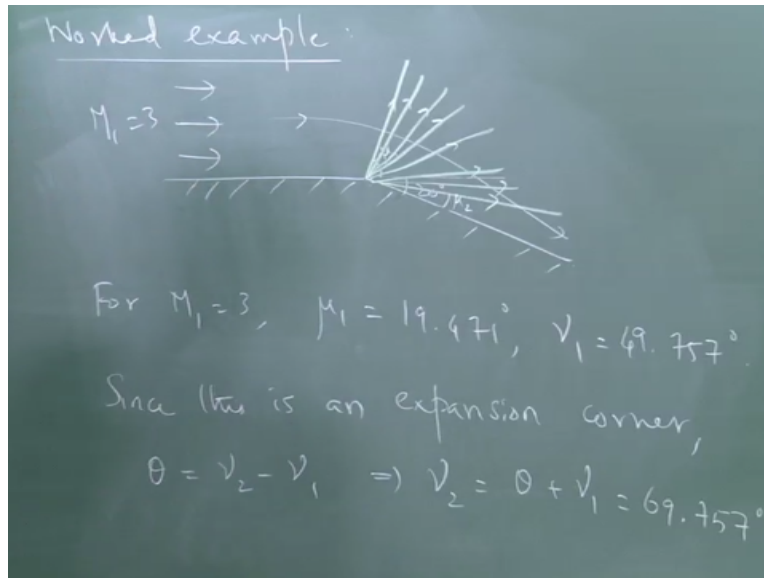 Worked example:
M₁ = 3
20° μ₂
For M₁ = 3, μ₁ = 19.471°, ν₁ = 49.757°.
Since this is an expansion corner,
θ = ν₂ - ν₁ ⇒ ν₂ = θ + ν₁ = 69.757°